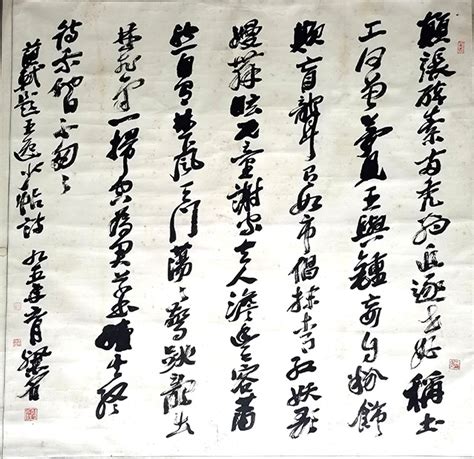 顛張醉素兩禿翁追逐世好稱書
工何曾夢見王與鍾妄自粉飾
欺盲聾有如市倡抹青紅妖歌
嫚舞眩兒童謝家夫人澹丰容蕭
然自有林下風天門蕩々驚跳龍出
林飛鳥一掃空為君草書續其終
待我他日不匆々
蘇軾題王逸少帖詩 九五年